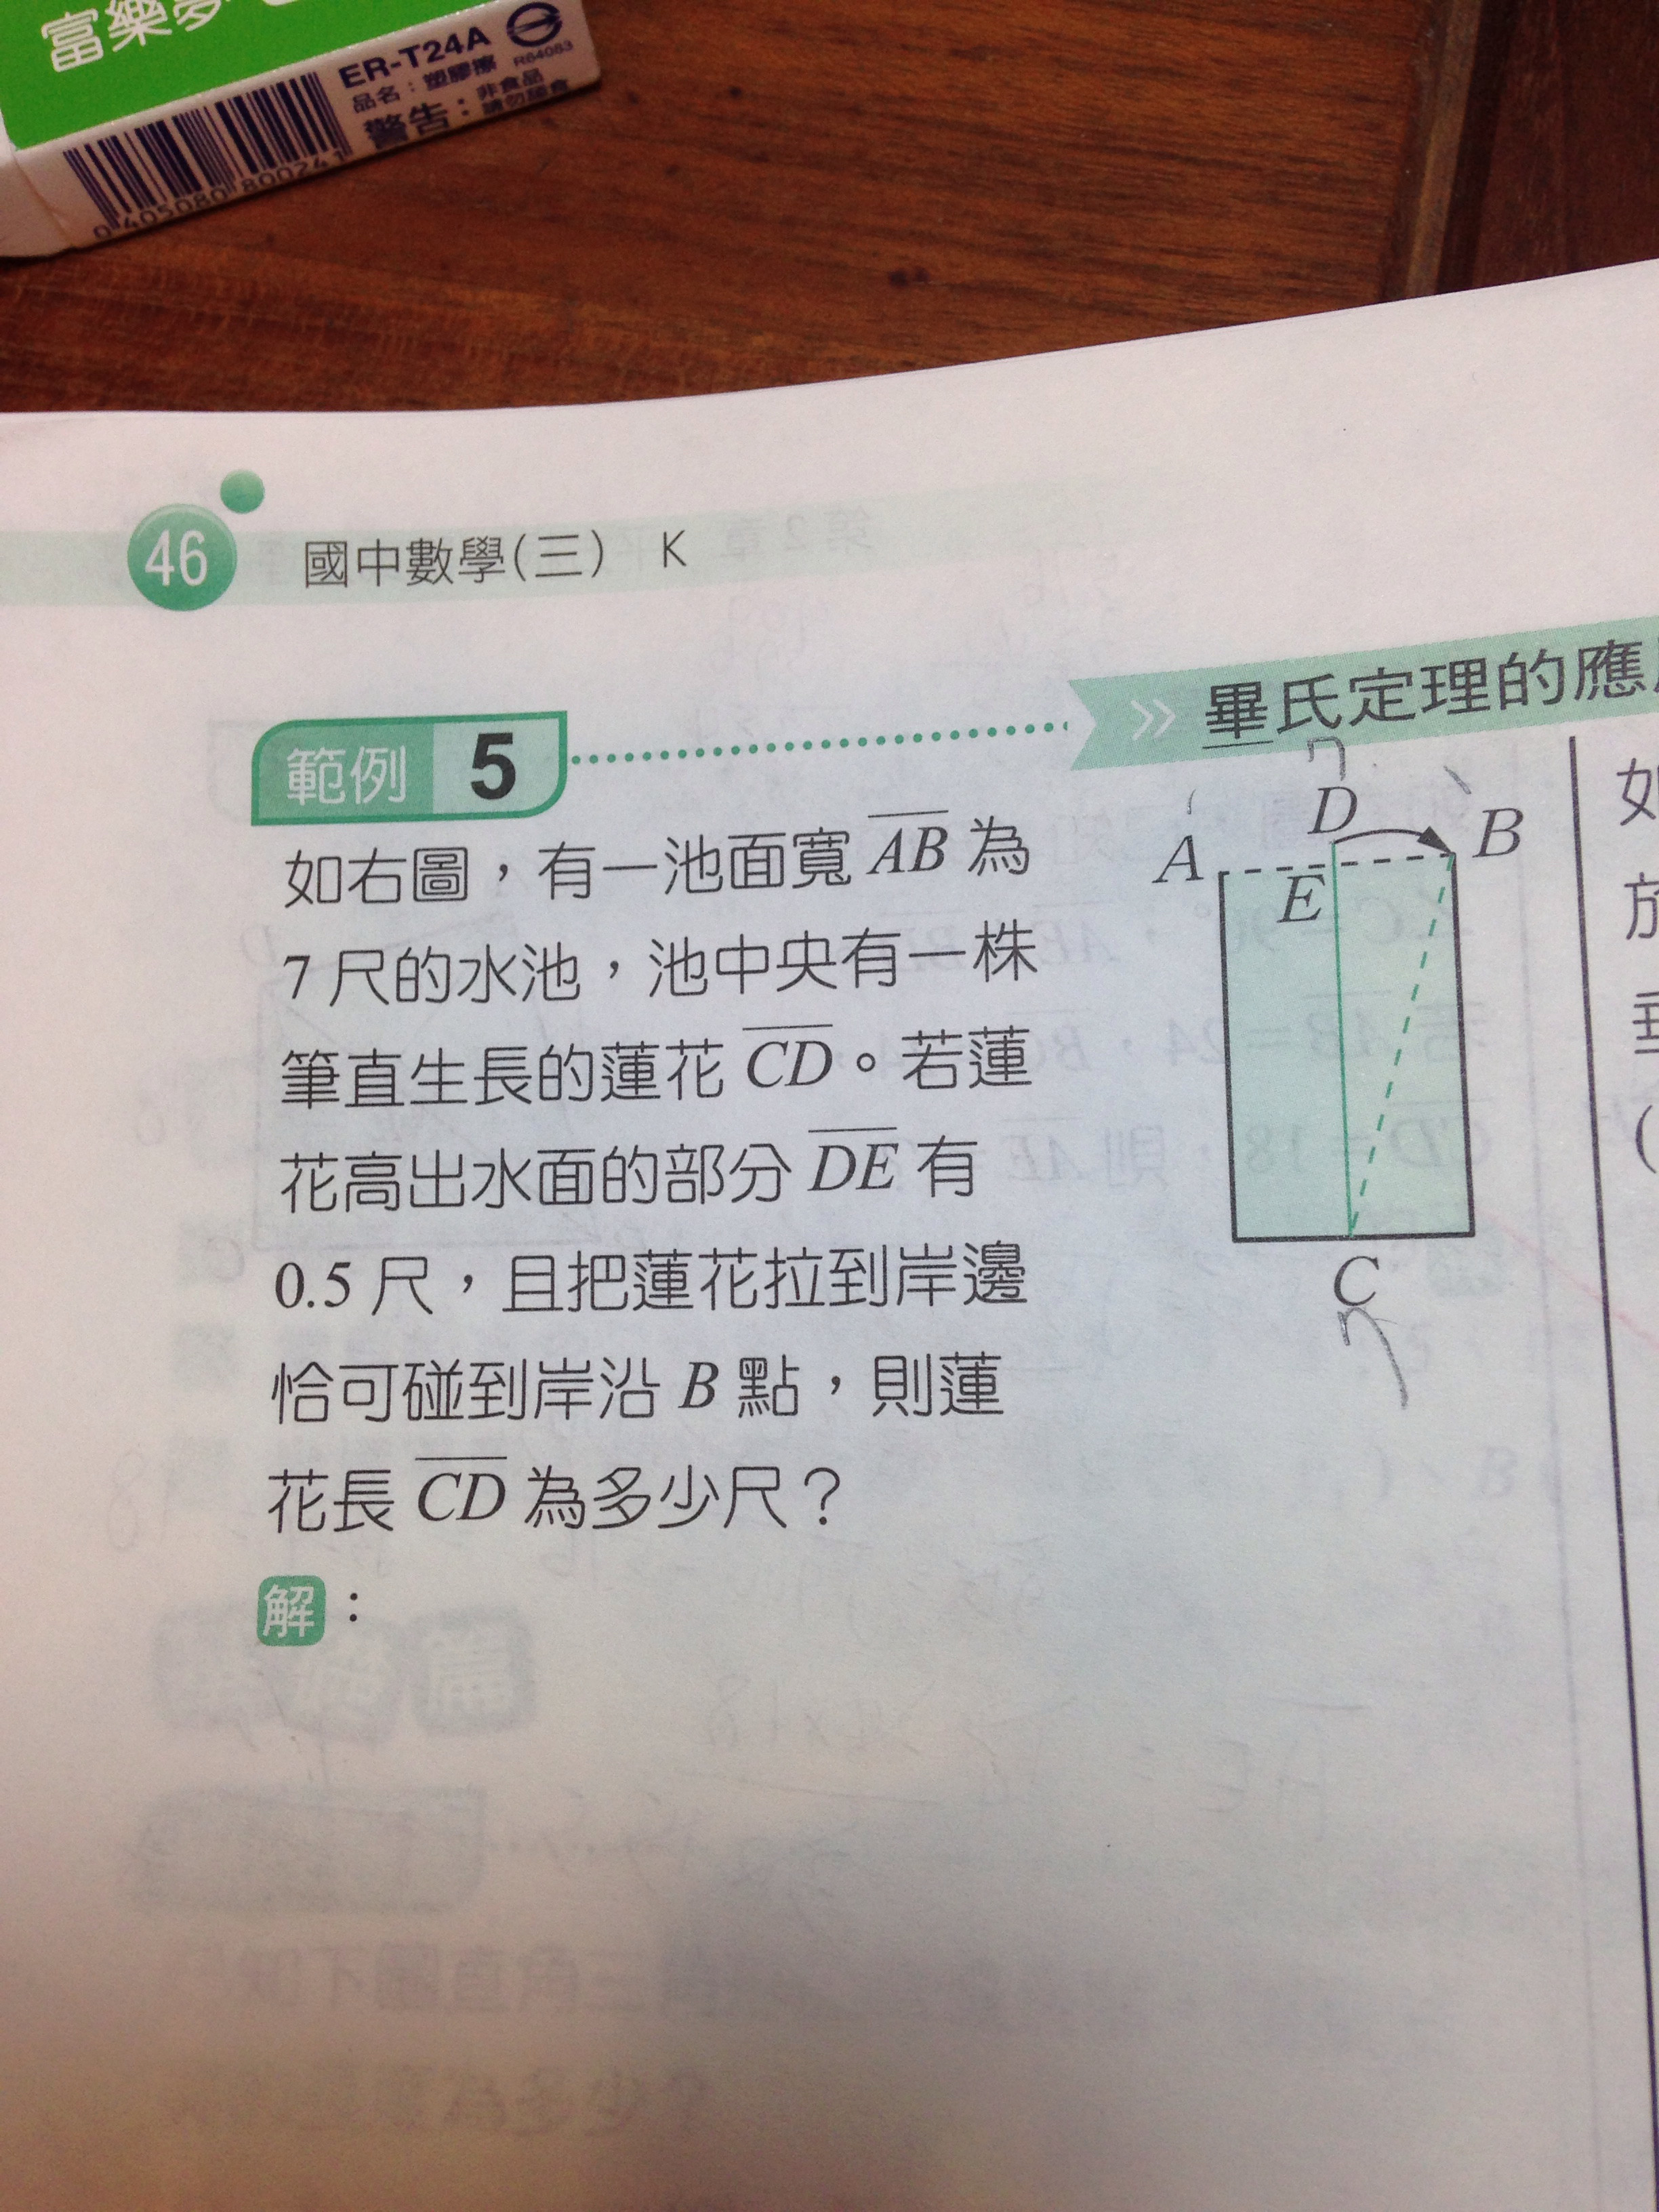 富樂夢
ER-T24A
R64083
品名：塑膠擦
非食品
警告：請勿吞食
46 國中數學(三) K
畢氏定理的應
範例 5
如右圖，有一池面寬 AB 為
7 尺的水池，池中央有一株
筆直生長的蓮花 CD。若蓮
花高出水面的部分 DE 有
0.5 尺，且把蓮花拉到岸邊
恰可碰到岸沿 B 點，則蓮
花長 CD 為多少尺？
解：
A
D
B
E
C
如
於